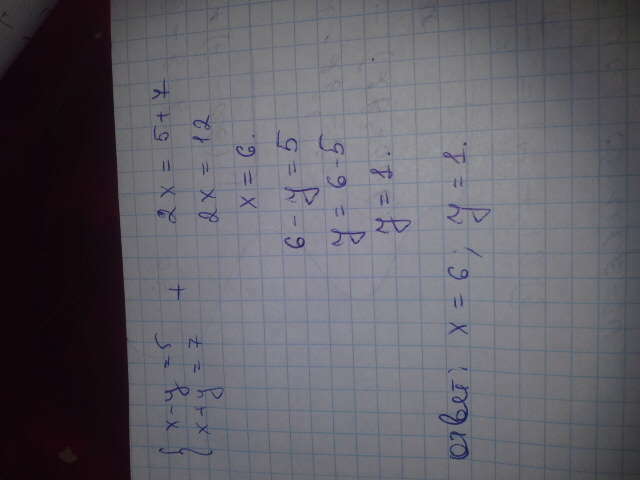 { x - y = 5
x + y = 7
+
2x = 5 + 7
2x = 12
x = 6.
6 - y = 5
y = 6 - 5
y = 1.
ответ: x = 6; y = 1.